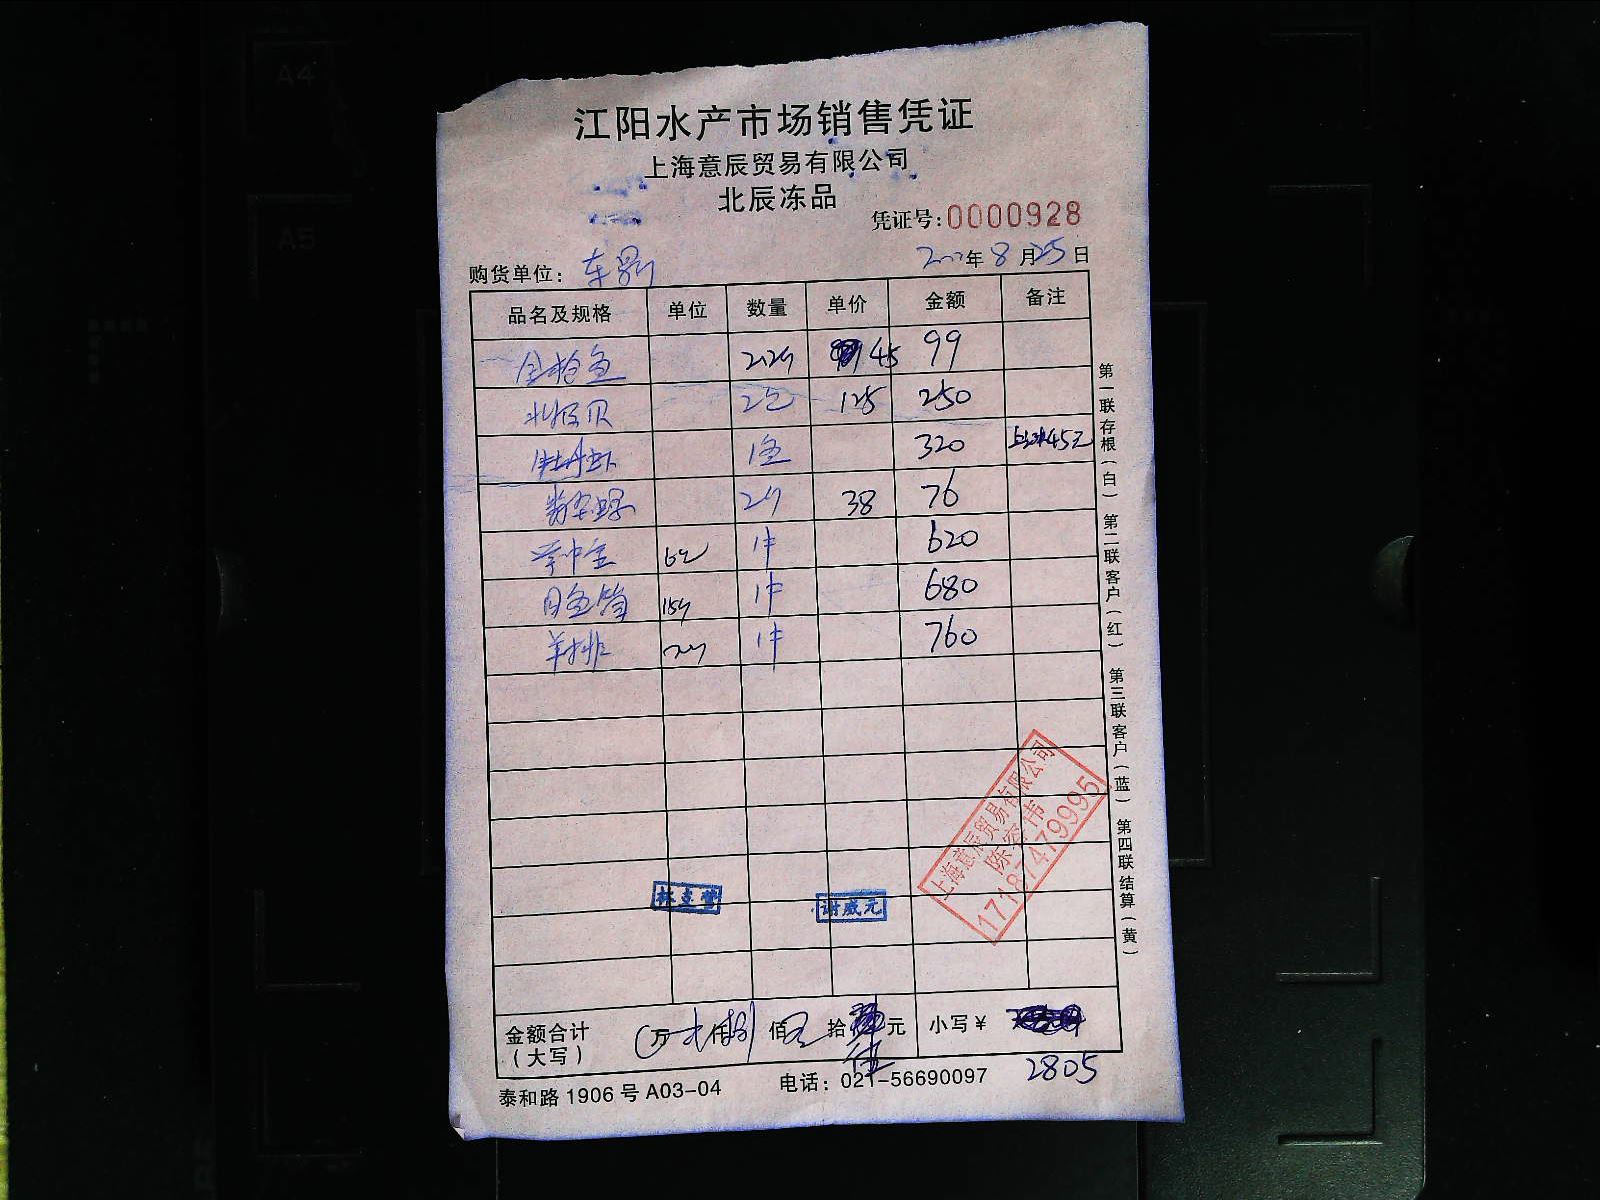 A4
A5
江阳水产市场销售凭证
上海意辰贸易有限公司
北辰冻品
凭证号:0000928
购货单位: 东 年 8 月 25 日
品名及规格 单位 数量 单价 金额 备注
金枪鱼 2.2斤 45 99
北极贝 2包 125 250
牡丹虾 1盒 320 45元
螺 2斤 38 76
1件 620
15斤 1件 680
羊排 1件 760
第一联存根(白) 第二联客户(红) 第三联客户(蓝) 第四联结算(黄)
上海意辰贸易有限公司
17187479995
谢成元
金额合计
(大写)
万 仟 捌 佰 拾 伍 元 小写¥
2805
泰和路1906号A03-04 电话: 021-56690097